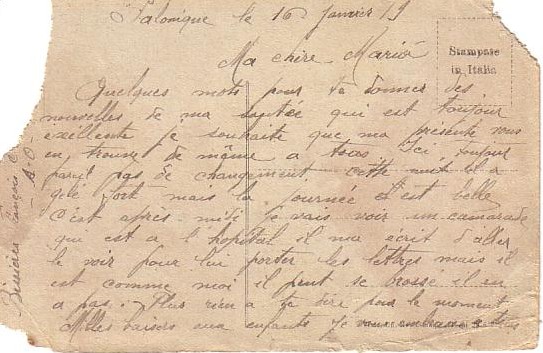 Salonique le 16 Janvier 19
Ma chère Marie
Stampate
in Italia
Quelques mots pour te donner des
nouvelles de ma santée qui est toujour
exellente je souhaite que ma présente vous
en trouve de même a tous Ici toujour
pas de changement cette nuit il a
gelé fort mais la journée est belle
c'est après midi je vais voir un camarade
qui est a l'hopital il ma écrit d'aller
le voir pour lui porter les lettres mais il
est comme moi il peut se brossé il en
a pas. Plus rien a te dire pour le moment
Milles baisers aux enfants Je vous embrasse a tous